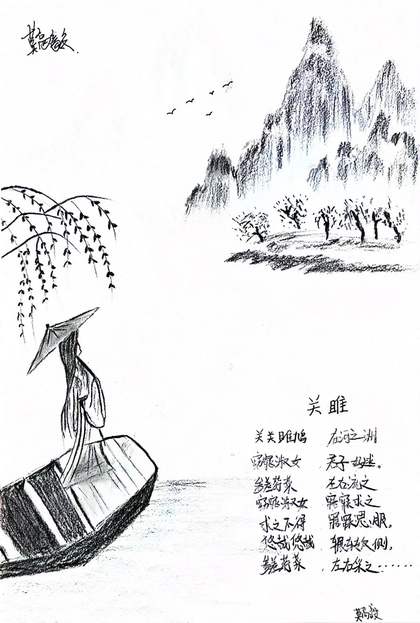 关雎
关关雎鸠 在河之洲
窈窕淑女 君子好逑。
参差荇菜 左右流之
窈窕淑女 寤寐求之
求之不得 寤寐思服。
悠哉悠哉 辗转反侧。
参差荇菜 左右采之……